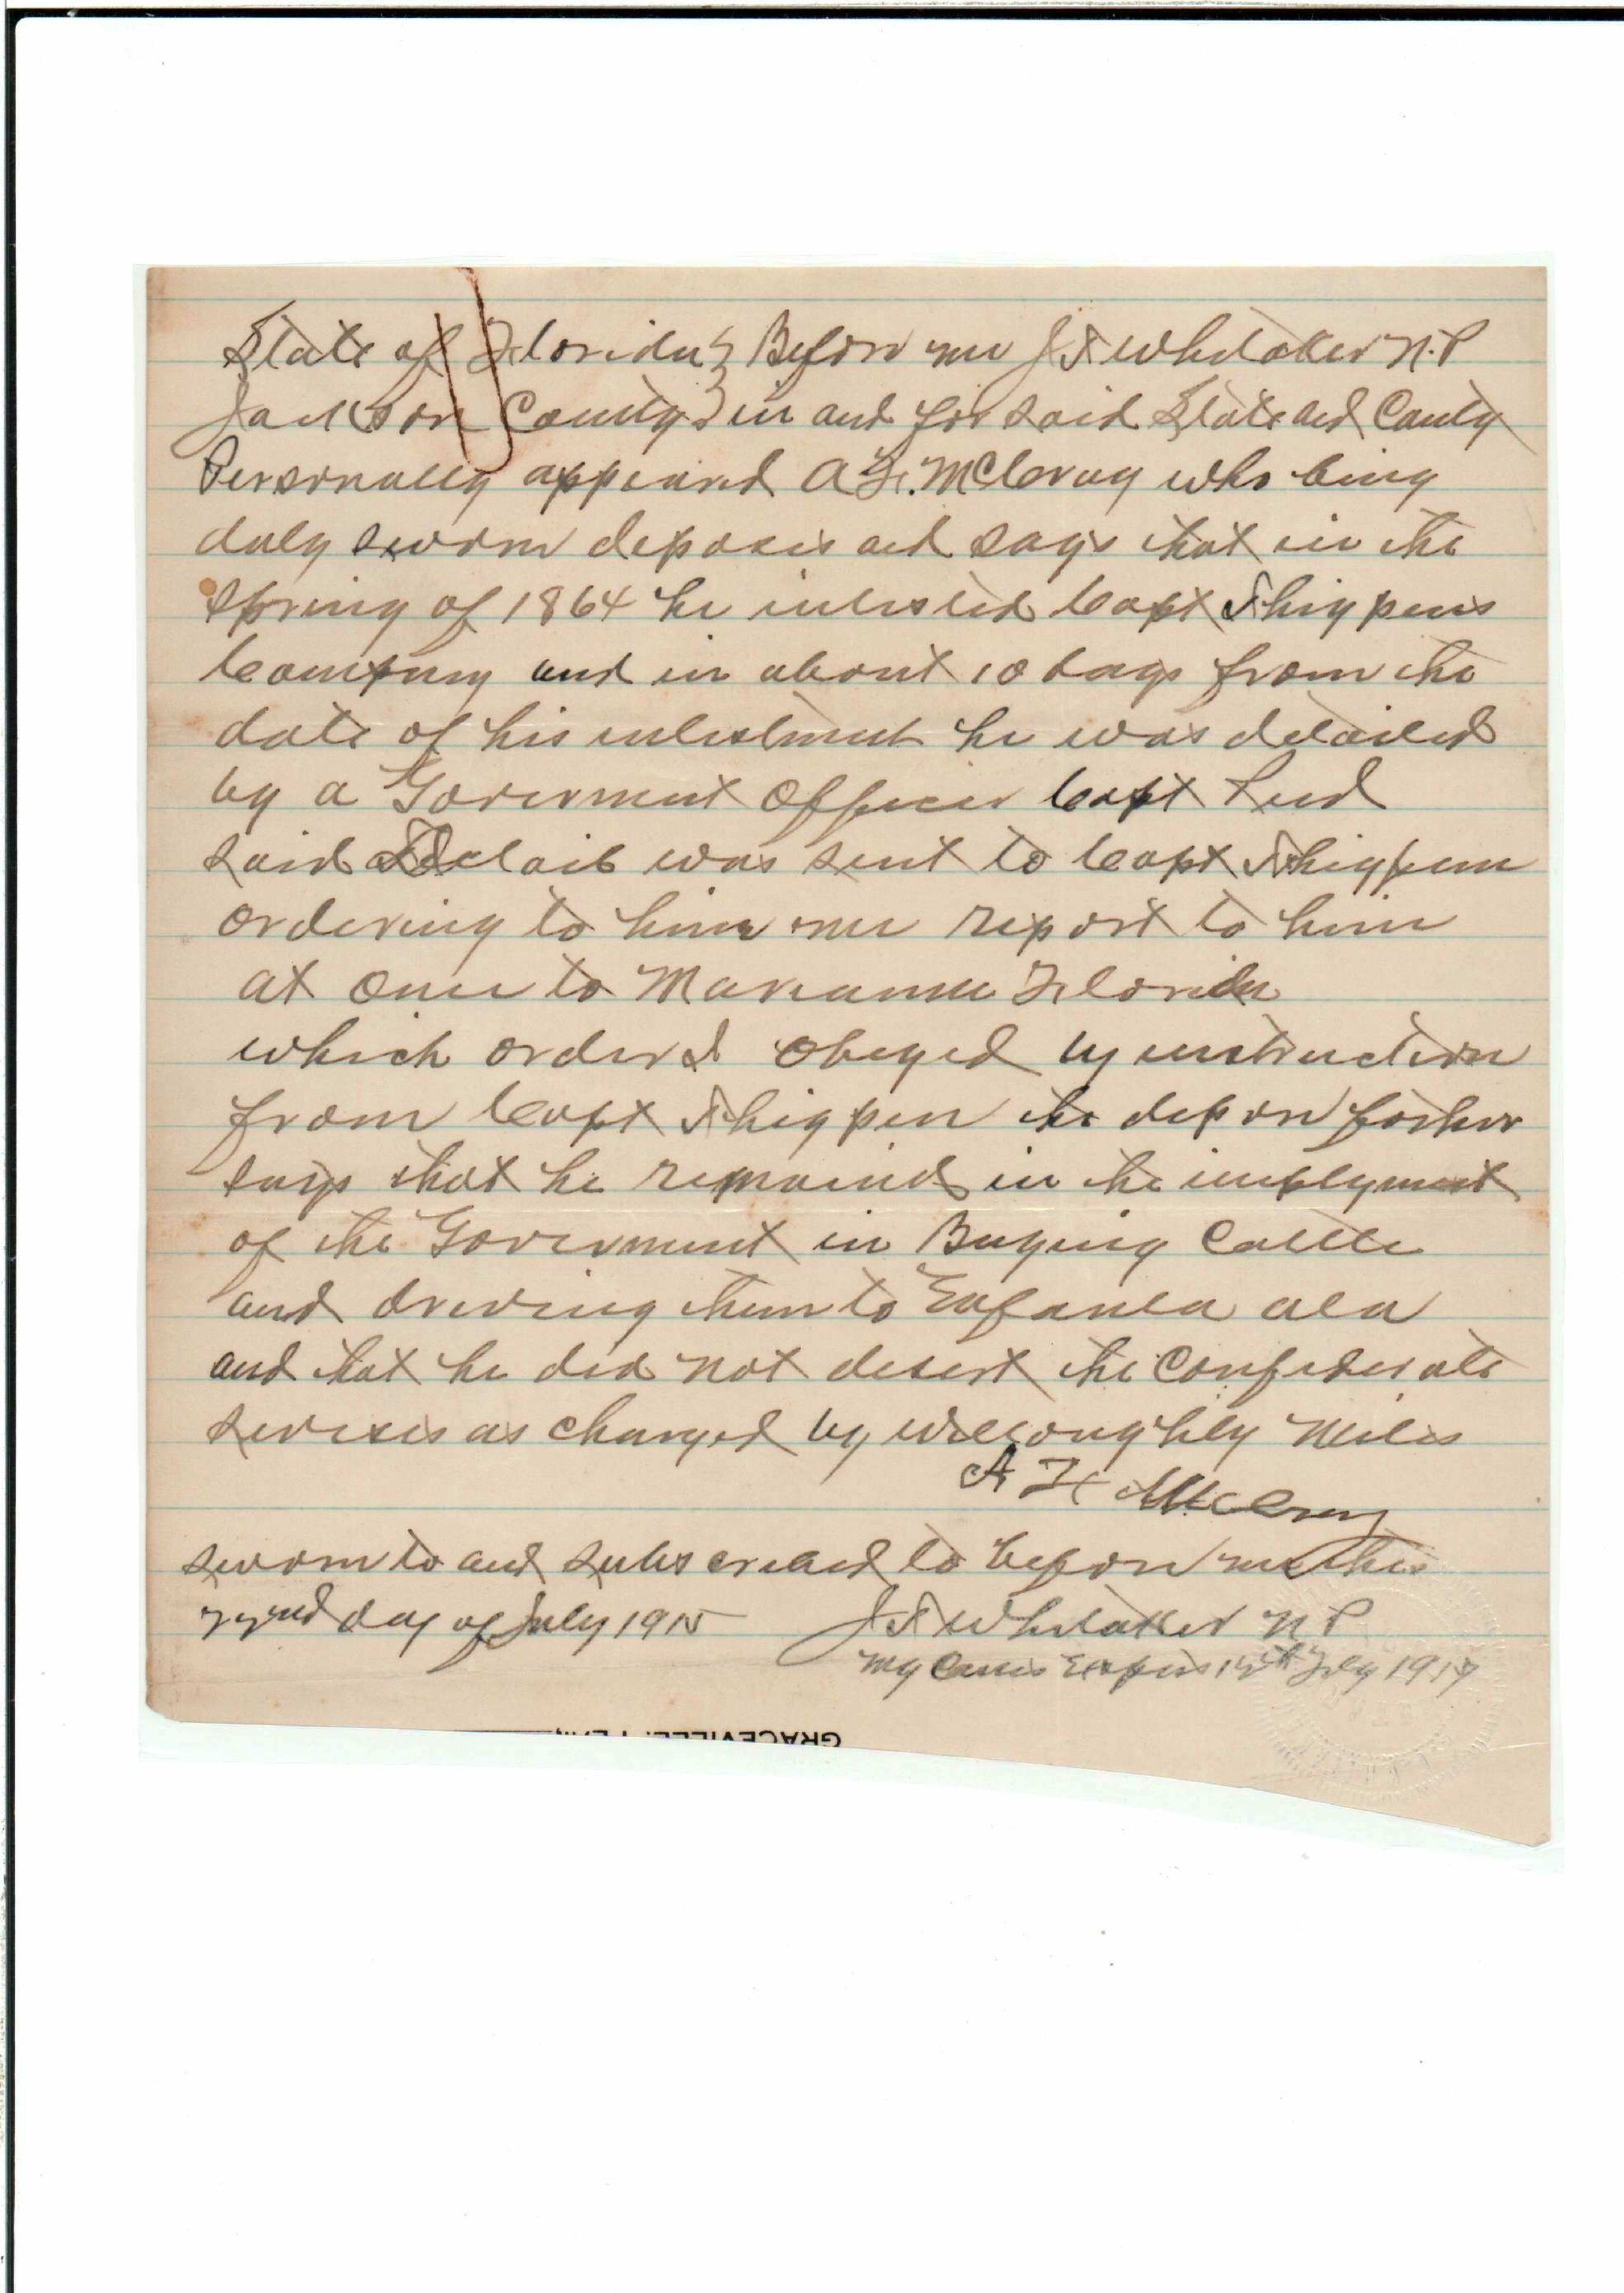 State of Florida } Before me J T Whitaker N.P
Jackson County } in and for said State and County
Personally appeared A F. McCleroy who being
duly sworn deposes and says that in the
Spring of 1864 he inlisted Capt Thigpens
Company and in about 10 days from the
date of his inlistment he was detailed
by a Goverment Officer Capt
said was sent to Capt Thigpen
ordering to him me report to him
at once to Marianna Florida
which order I obeyed by instruction
from Capt Thigpen the depon forher
says that he remained in the imployment
of the Goverment in Buying Cattle
and driving them to Eufaula ala
and that he did not desert the Confederate
servises as charged by Willoughby Miles
A F McCleroy
sworn to and subscribed to before me this
22nd day of July 1915 J T Whitaker N P
My Comis Expirs July 1917
GRACEVILLE, FLA.,